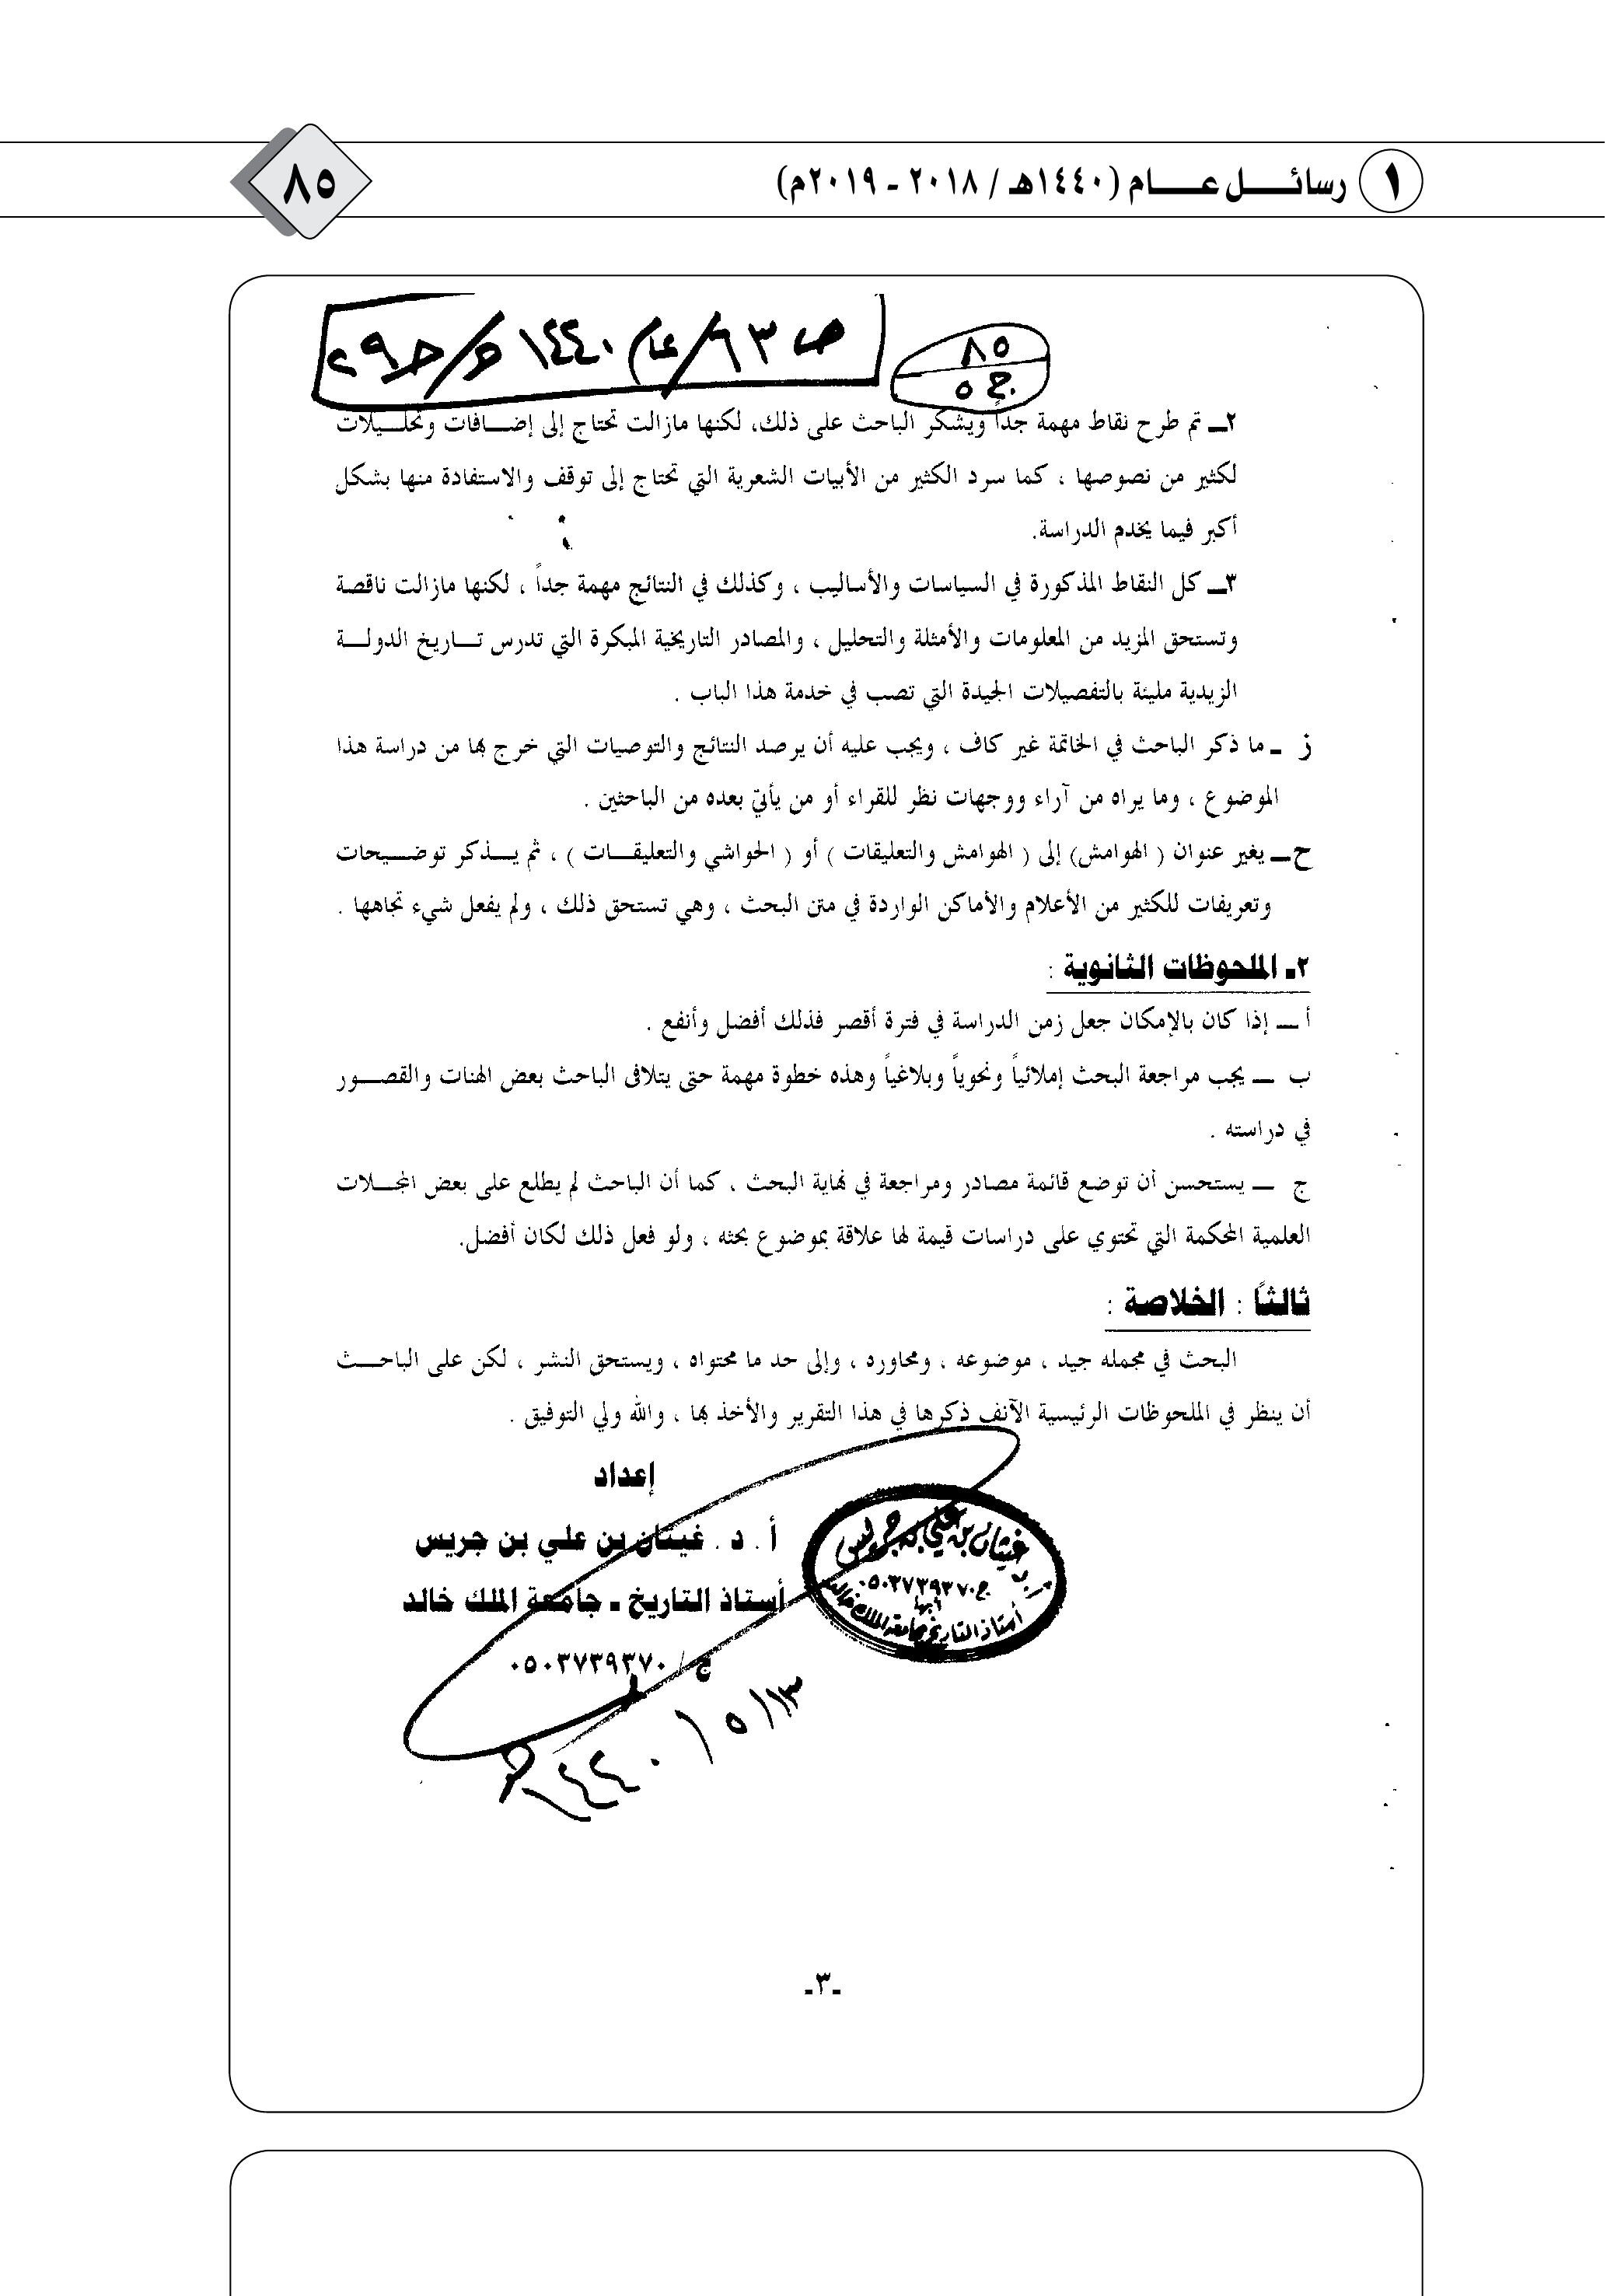 ١ رسائـــل عـــــام (١٤٤٠هـ / ٢٠١٨ - ٢٠١٩م)
٨٥
ص ٦٣/عام ١٤٤٠هـ/
٨٥
ج ٥
٢ــ تم طرح نقاط مهمة جداً ويشكر الباحث على ذلك، لكنها مازالت تحتاج إلى إضـــافات وتحلـــيلات
لكثير من نصوصها ، كما سرد الكثير من الأبيات الشعرية التي تحتاج إلى توقف والاستفادة منها بشكل
أكبر فيما يخدم الدراسة.
٣ــ كل النقاط المذكورة في السياسات والأساليب ، وكذلك في النتائج مهمة جداً ، لكنها مازالت ناقصة
وتستحق المزيد من المعلومات والأمثلة والتحليل ، والمصادر التاريخية المبكرة التي تدرس تـــاريخ الدولـــة
الزيدية مليئة بالتفصيلات الجيدة التي تصب في خدمة هذا الباب .
ز ـ ما ذكر الباحث في الخاتمة غير كاف ، ويجب عليه أن يرصد النتائج والتوصيات التي خرج بها من دراسة هذا
الموضوع ، وما يراه من آراء ووجهات نظر للقراء أو من يأتي بعده من الباحثين .
ح ــ يغير عنوان ( الهوامش) إلى ( الهوامش والتعليقات ) أو ( الحواشي والتعليقـــات ) ، ثم يـــذكر توضـــيحات
وتعريفات للكثير من الأعلام والأماكن الواردة في متن البحث ، وهي تستحق ذلك ، ولم يفعل شيء تجاهها .
٢ـ الملحوظات الثانوية :
أ ــ إذا كان بالإمكان جعل زمن الدراسة في فترة أقصر فذلك أفضل وأنفع .
ب ــ يجب مراجعة البحث إملائياً ونحوياً وبلاغياً وهذه خطوة مهمة حتى يتلافى الباحث بعض الهنات والقصـــور
في دراسته .
ج ــ يستحسن أن توضع قائمة مصادر ومراجعة في نهاية البحث ، كما أن الباحث لم يطلع على بعض المجـــلات
العلمية المحكمة التي تحتوي على دراسات قيمة لها علاقة بموضوع بحثه ، ولو فعل ذلك لكان أفضل.
ثالثاً : الخلاصة :
البحث في مجمله جيد ، موضوعه ، ومحاوره ، وإلى حد ما محتواه ، ويستحق النشر ، لكن على الباحـــث
أن ينظر في الملحوظات الرئيسية الآنف ذكرها في هذا التقرير والأخذ بها ، والله ولي التوفيق .
إعداد
أ . د . غيثان بن علي بن جريس
أستاذ التاريخ ـ جامعة الملك خالد
ج / ٠٥٠٣٧٣٩٣٧٠
غيثان بن علي بن جريس
ج ٠٥٠٣٧٣٩٣٧٠
أبها
أستاذ التاريخ بجامعة الملك خالد
١٣/٥/١٤٤٠هـ
ـ٣ـ